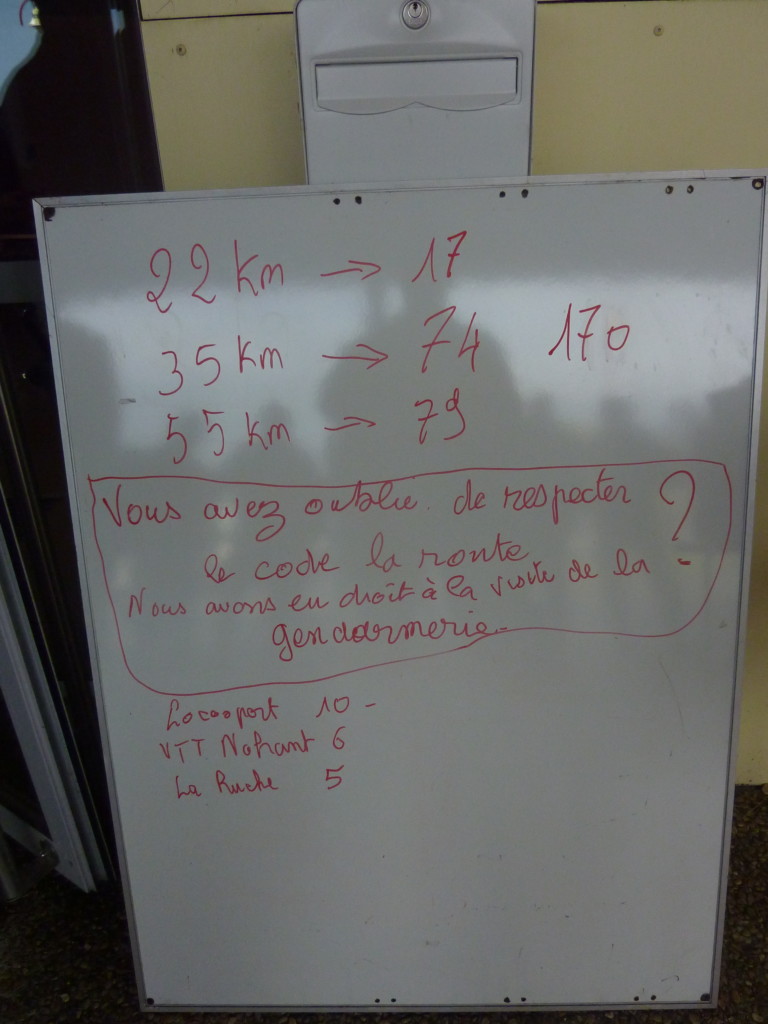 22 km → 17
35 km → 74 170
55 km → 79
Vous avez oublié de respecter ?
le code la route
Nous avons eu droit à la visite de la
gendarmerie.
Locosport 10 -
VTT Nohant 6
La Ruche 5